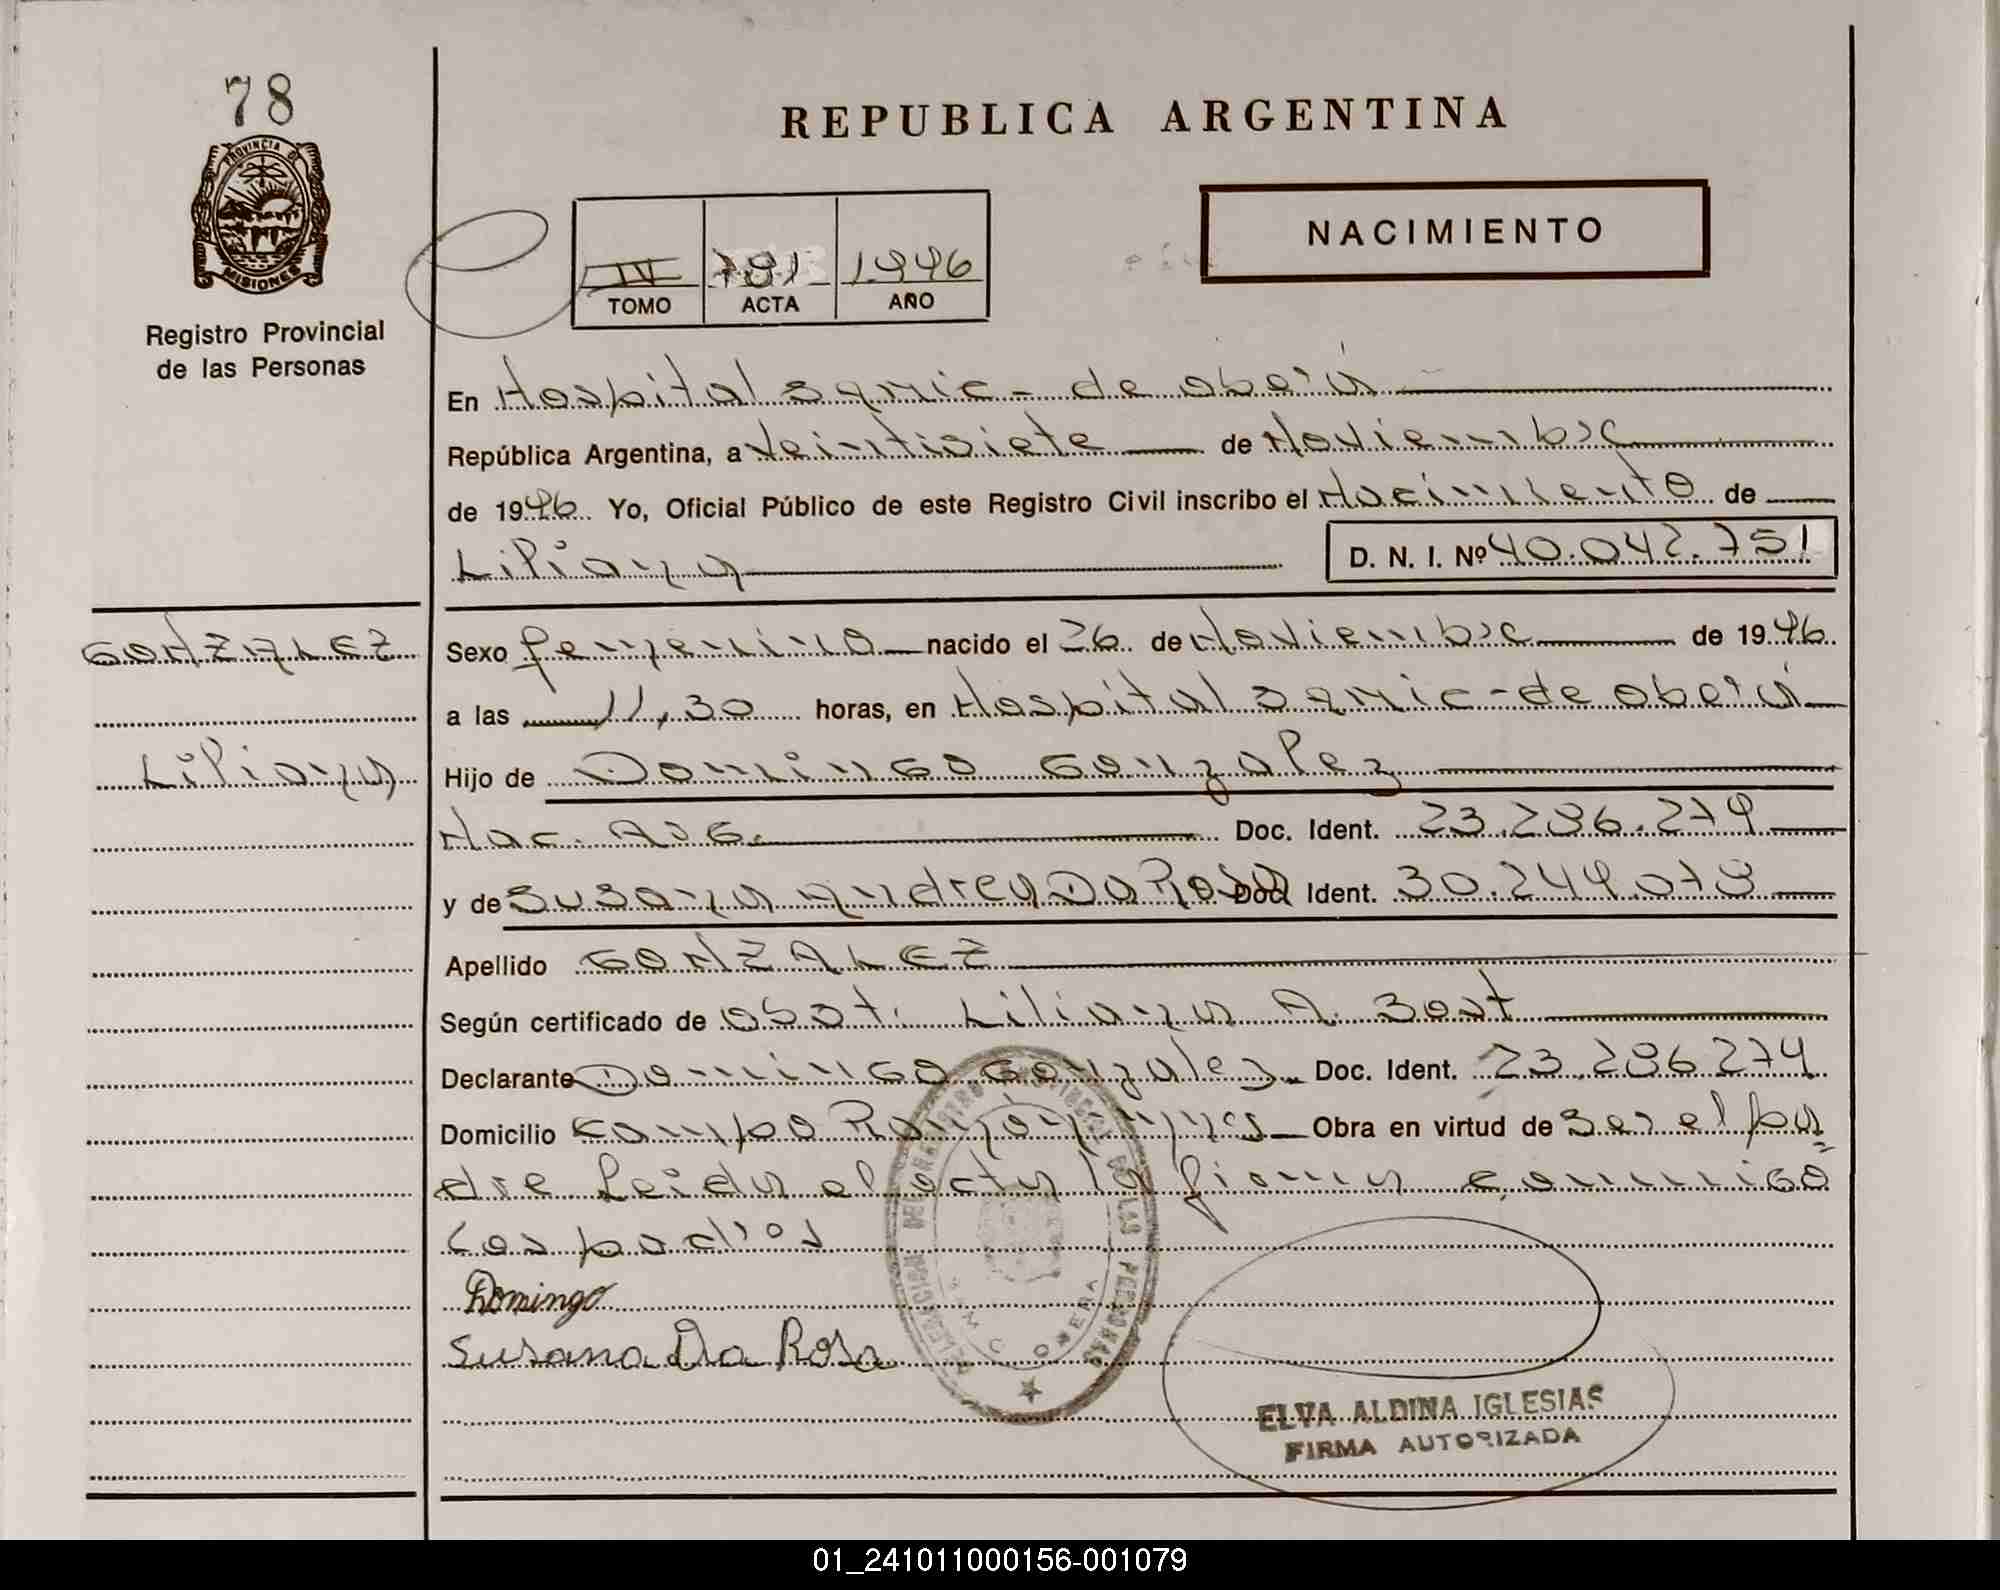 78
REPUBLICA ARGENTINA
PROVINCIA DE
MISIONES
Registro Provincial
de las Personas
NACIMIENTO
IV 791 1.996
TOMO ACTA AÑO
En Hospital Samic - de oberá
República Argentina, a Veintisiete de Noviembre
de 1996. Yo, Oficial Público de este Registro Civil inscribo el Nacimiento de
Liliana D. N. I. Nº 40.042.751
GONZALEZ
Liliana
Sexo femenino nacido el 26 de Noviembre de 1996.
a las 11,30 horas, en Hospital Samic - de oberá
Hijo de Domingo Gonzalez
Nac. ARG. Doc. Ident. 23.286.274
y de Susana andrea Da Rosa Doc. Ident. 30.244.078
Apellido GONZALEZ
Según certificado de obst. Liliana A. Bost
Declarante Domingo Gonzalez Doc. Ident. 23.286 274
Domicilio campo Obra en virtud de Ser el pa=
dre leida el acta la firman conmigo
los padres
Domingo
Susana Da Rosa
DELEGACION DEL REGISTRO PROVINCIAL DE LAS PERSONAS
ELVA ALDINA IGLESIAS
FIRMA AUTORIZADA
01_241011000156-001079